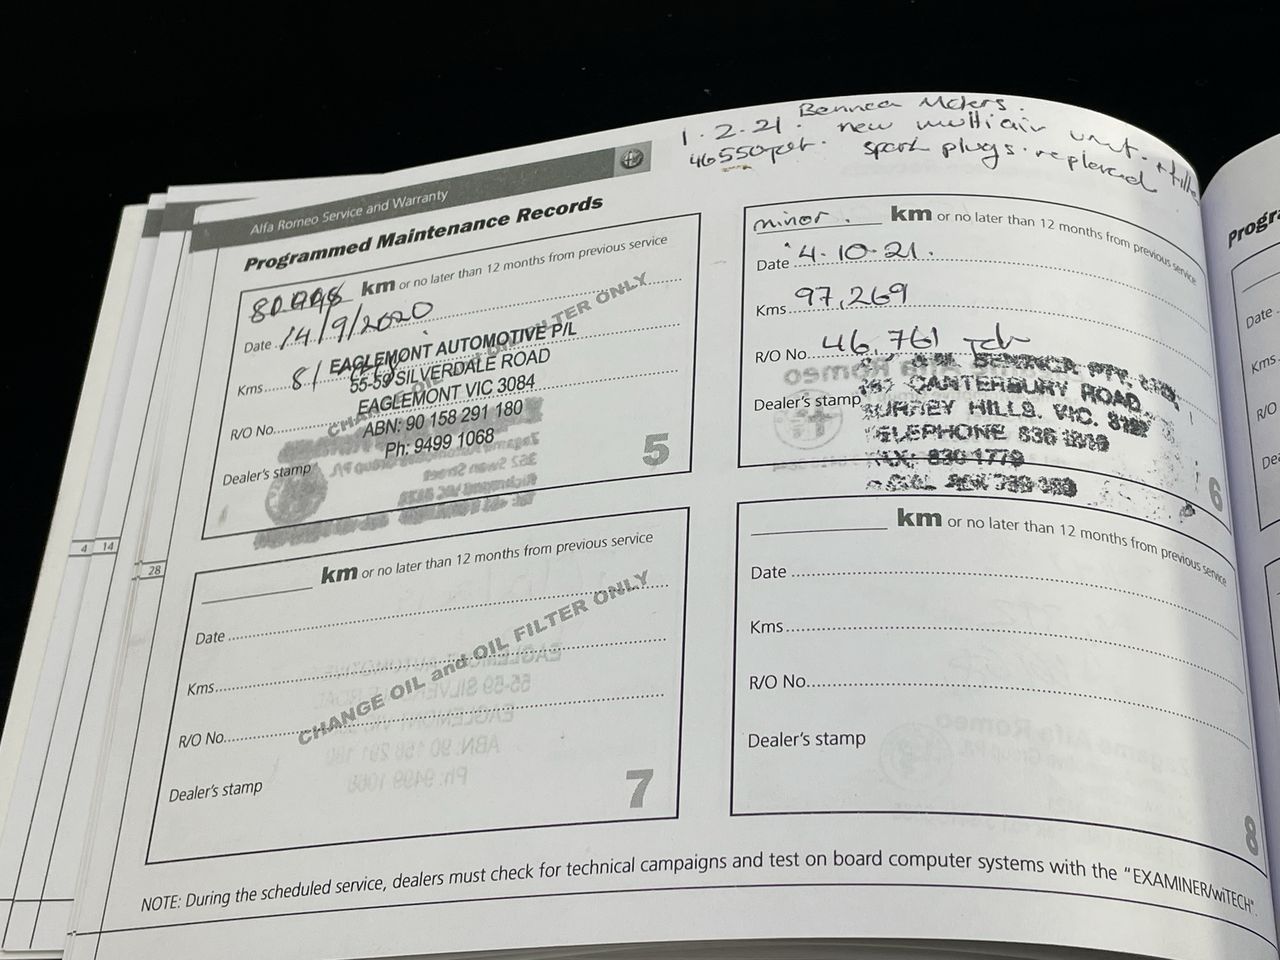 Motors.
1.2.21. new multiair unit. + filter
46550 spark plugs. replaced
Alfa Romeo Service and Warranty
Programmed Maintenance Records
km or no later than 12 months from previous service
Date 14/9/2020
Kms 81
R/O No.
Dealer's stamp
CHANGE OIL and OIL FILTER ONLY
EAGLEMONT AUTOMOTIVE P/L
55-59 SILVERDALE ROAD
EAGLEMONT VIC 3084
ABN: 90 158 291 180
Ph: 9499 1068
5
minor. km or no later than 12 months from previous service
Date 4.10.21.
Kms 97,269
R/O No. 46,761
Dealer's stamp
CANTERBURY ROAD,
SURREY HILLS. VIC.
TELEPHONE
FAX: 830 1779
6
km or no later than 12 months from previous service
Date
Kms
R/O No.
Dealer's stamp
CHANGE OIL and OIL FILTER ONLY
7
km or no later than 12 months from previous service
Date
Kms
R/O No.
Dealer's stamp
8
NOTE: During the scheduled service, dealers must check for technical campaigns and test on board computer systems with the "EXAMINER/wiTECH".
4
14
28
Date
Kms
R/O